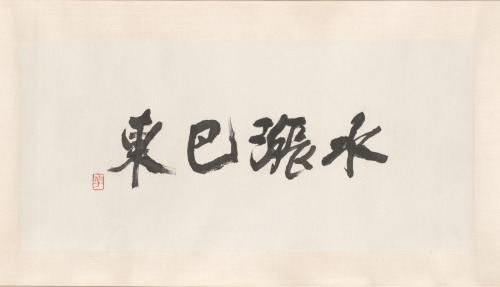 水漲巴東